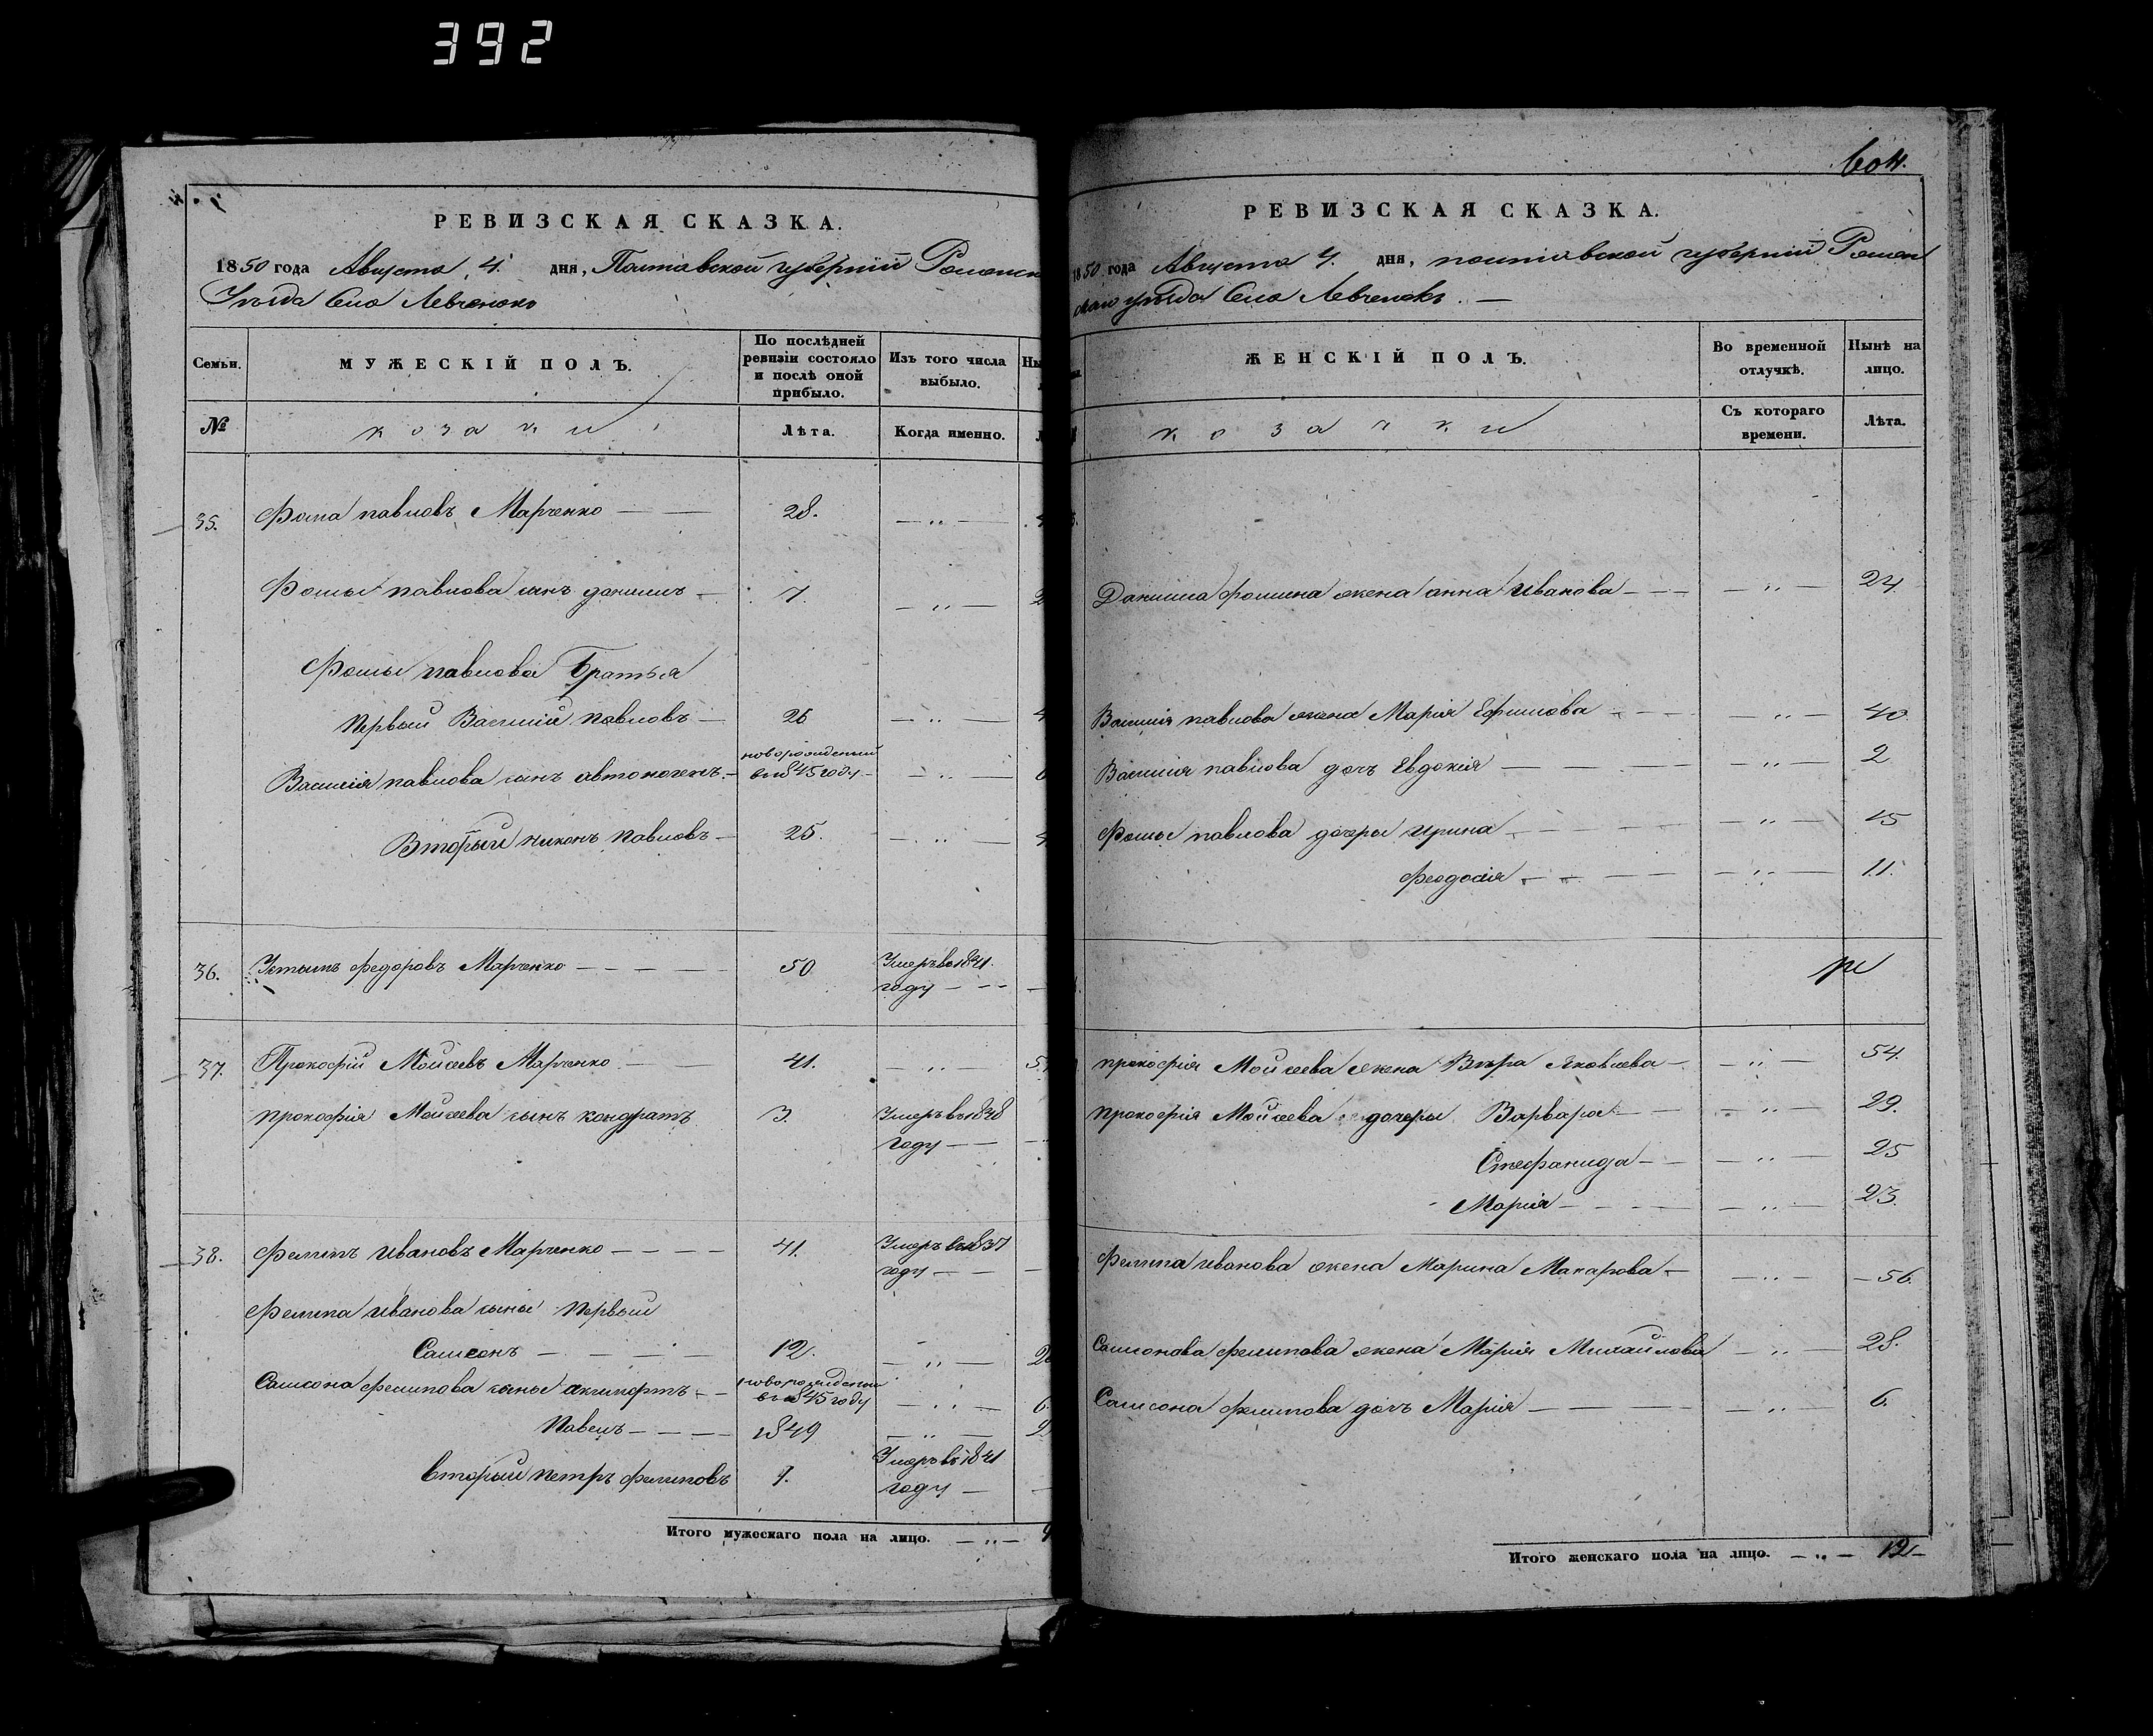 392
604.
РЕВИЗСКАЯ СКАЗКА.
1850 года Августа 4. дня, Полтавской губерніи Роменск
Уѣзда Село Левченокъ
Семьи. МУЖЕСКІЙ ПОЛЪ. По послѣдней ревизіи состояло и послѣ оной прибыло. Изъ того числа выбыло. Ны
№ козаки Лѣта. Когда именно.
35. Фома павловъ Марченко — — 28. — „ —
Фомы павлова сынъ данило — 7. — „ —
Фомы павлова Братья
первый Василій павловъ — 26 — „ —
Василія павлова сынъ автономъ — новорожденный
в 1845 году — — „ —
Вторый никонъ павловъ — 25. — „ —
36. федоровъ Марченко — — — 50. Умеръ въ 1841.
году — — —
37. Прокофій Моисеевъ Марченко — — 41. — „ —
прокофія Моисеева сынъ кондратъ 3. Умеръ въ 1838
году — —
38. Филипъ ивановъ Марченко — — — — 41. Умеръ въ 1837
году — —
Филипа иванова сыны первый
Самсонъ — — — — 12. — „ —
Самсона филипова сыны — — новорожденный
в 1845 году — „ — 6
Павелъ — — — — 1849 — „ —
вторый петръ филиповъ Умеръ въ 1841
году —
Итого мужескаго пола на лицо. — „ —
РЕВИЗСКАЯ СКАЗКА.
1850 года Августа 4. дня, полтавской губерніи Ромен
скаго уѣзда Село Левченокъ. —
ЖЕНСКІЙ ПОЛЪ. Во временной отлучкѣ. Нынѣ на лицо.
козачки Съ котораго времени. Лѣта.
Данила фомина жена анна Иванова — — — — „ — 24.
Василія павлова жена Марія Ефимова — — — — „ — 40.
Василія павлова дочь Евдокія — — — — „ — 2
Фомы павлова дочери ирина — — — — „ — 15
феодосія — — — — — „ — 11.
прокофія Моисеева жена Вѣра Яковлева — — „ — 54.
прокофія Моисеева дочери Варвара — — — „ — 29.
Стефанида — — — „ — 25
Марія — — — — — „ — 23.
Филипа иванова жена Марина Макарова — — „ — — 56.
Самсонова филипова жена Марія Михайлова — „ — 28.
Самсона филипова дочь Марія — — — — „ — 6.
Итого женскаго пола на лицо. — „ — 12 —